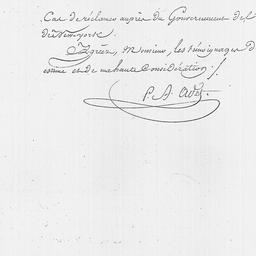 Cas de réclamer auprès du Gouvernement de
de New-York.
Agréez, Monsieur, les témoignages d
estime et de ma haute Considération ./.
P. A. Adet.